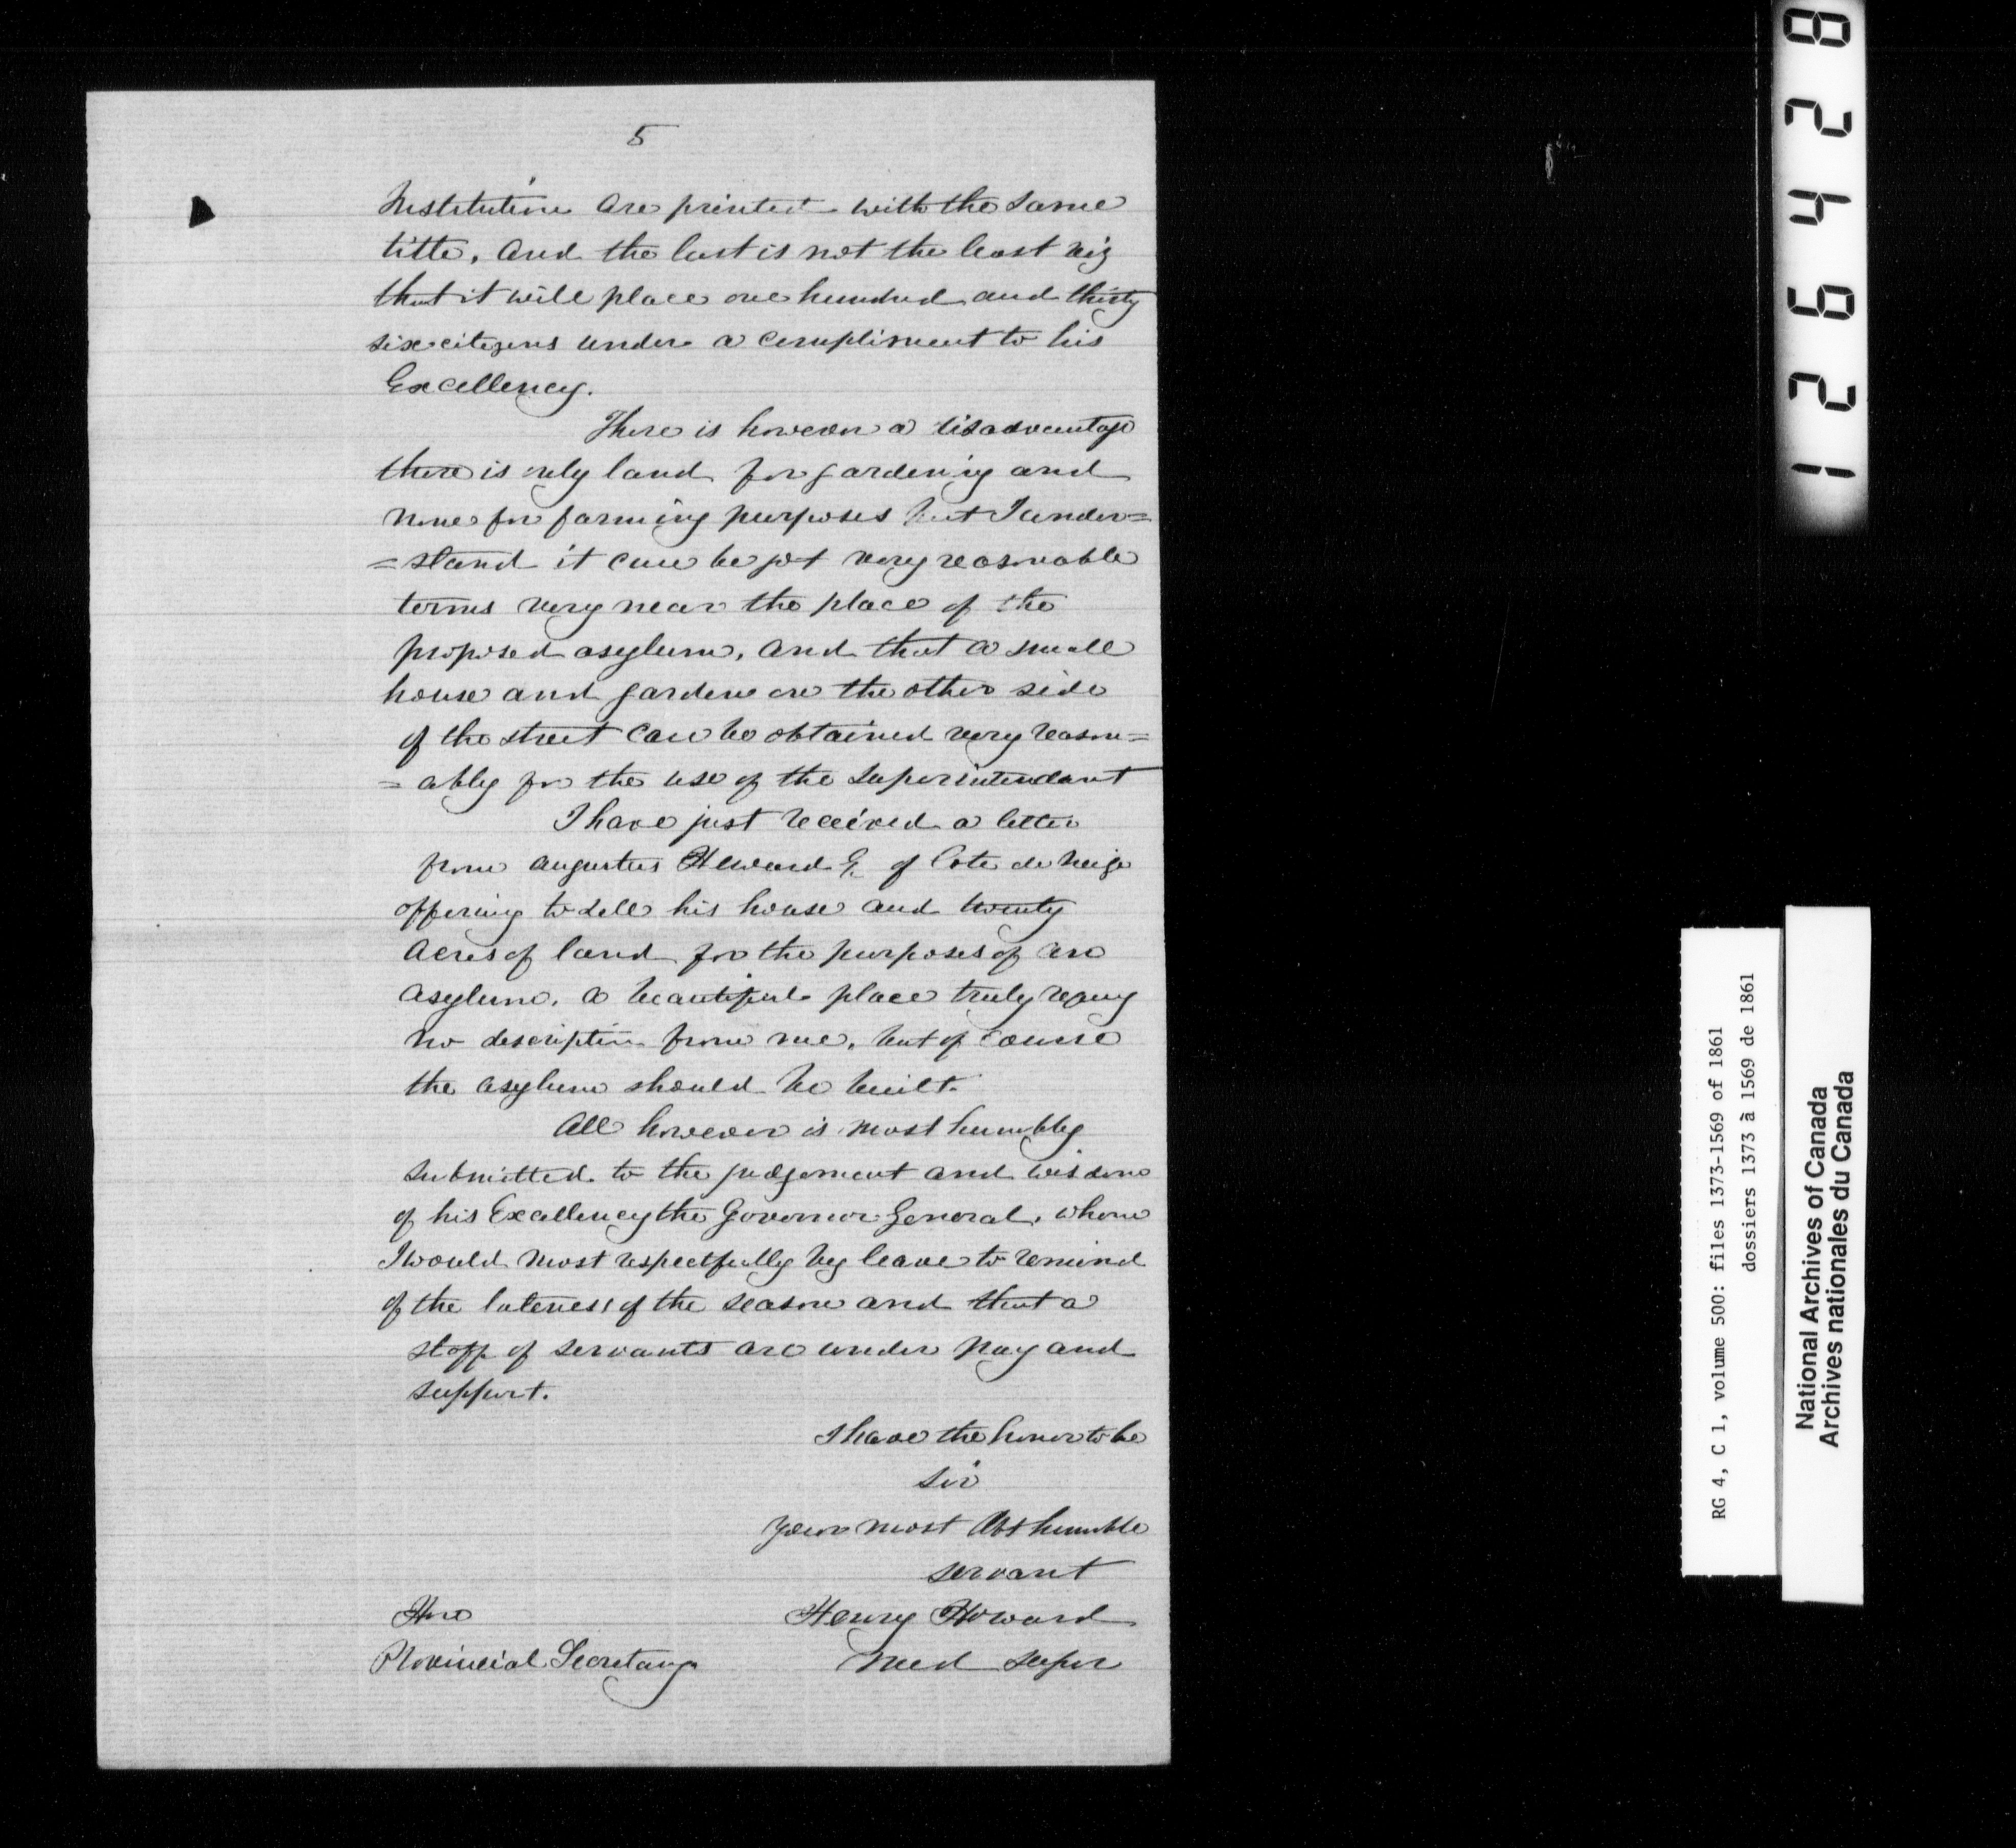 5
Institution are printed with the same
title, and the last is not the least viz
that it will place one hundred and thirty
six citizens under a compliment to his
Excellency.
There is however a disadvantage
there is only land for gardening and
none for farming purposes but I under=
=stand it can be got very reasonable
terms very near the place of the
proposed asylum, and that a small
house and garden on the other side
of the street can be obtained very reason=
=ably for the use of the Superintendant
I have just received a letter
from Augustus Heward E. of Cote de Neige
offering to sell his house and twenty
acres of land for the purposes of an
asylum, a beautiful place truly
no description from me, but of course
the asylum should be built.
All however is most humbly
submitted to the judgement and wisdom
of his Excellency the Governor General, whom
I would most respectfully beg leave to remind
of the lateness of the season and that a
staff of servants are under pay and
support.
I have the honor to be
Sir
your most Obt humble
servant
Henry Howard
Med Super
Hon
Provincial Secretary
126428
RG 4, C 1, volume 500: files 1373-1569 of 1861
dossiers 1373 à 1569 de 1861
National Archives of Canada
Archives nationales du Canada